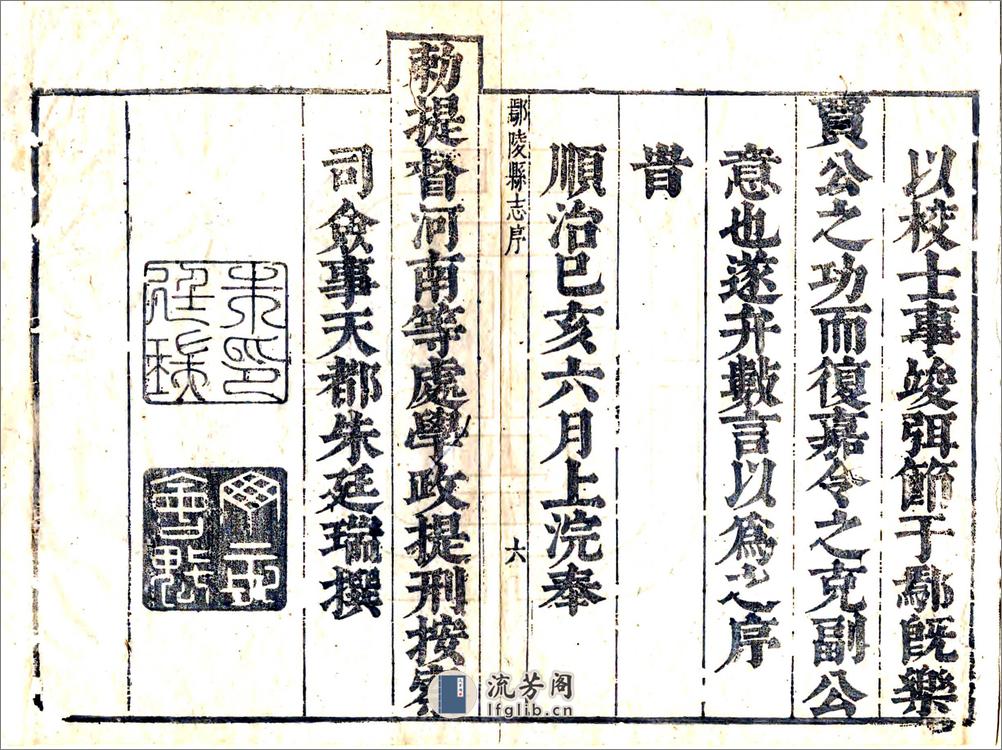 以校士事竣弭節于鄢既樂
賈公之功而復嘉令之克副公
意也遂弁數言以為之序
旹
順治己亥六月上浣奉
鄢陵縣志序
六
勅提督河南等處學政提刑按察
司僉事天都朱廷瑞撰
朱印
廷瑞
流芳阁
lfglib.cn